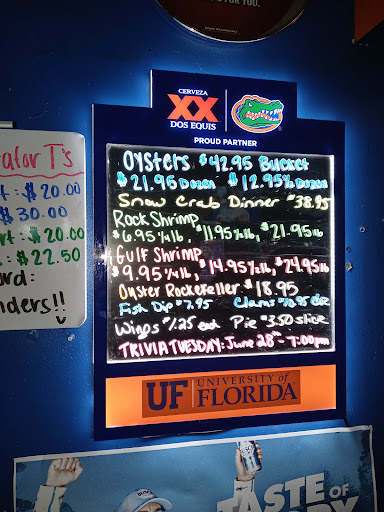 FOR YOU.
CERVEZA
XX
DOS EQUIS
PROUD PARTNER
Oysters $42.95 Bucket
$21.95 Dozen $12.95 ½ Dozen
Snow Crab Dinner $38.95
Rock Shrimp
$6.95 ¼ lb, $11.95 ½ lb, $21.95 lb
Gulf Shrimp
$9.95 ¼ lb, $14.95 ½ lb, $24.95 lb
Oyster Rockefeller $18.95
Fish Dip $7.95 Clams $10.95 doz
Wings $1.25 each Pie $3.50 slice
TRIVIA TUESDAY: June 28th - 7:00pm
UF UNIVERSITY of
FLORIDA
ator T's
: $20.00
$30.00
rt : $20.00
: $22.50
rd:
nders!!
TASTE OF